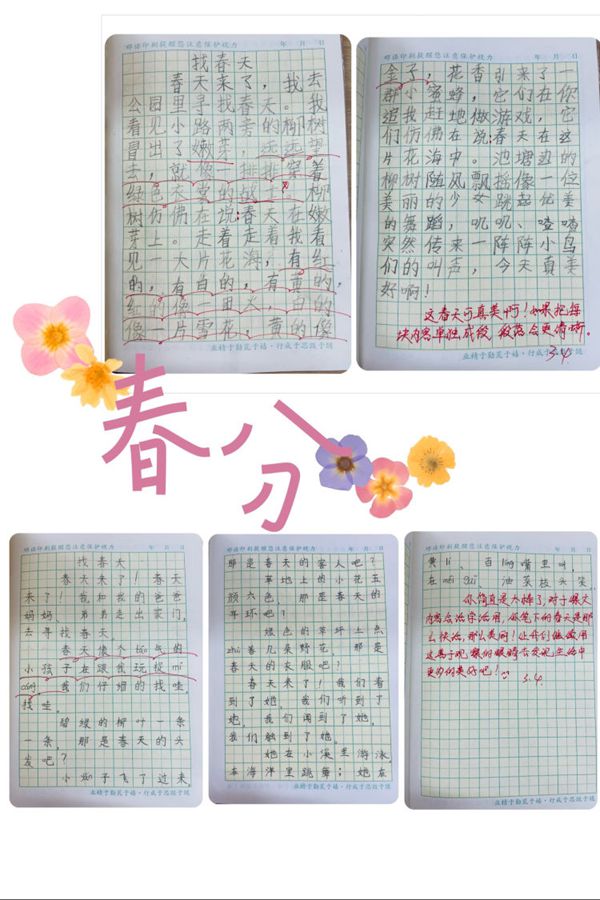 哪诺印刷提醒您注意保护视力 年 月 日
找春天
春天来了，我去
公园里寻找春天。我
看见小路两旁的柳树
冒出了嫩芽，远远望
去，就像一排排穿着
绿色衣裳的战士。柳
树仿佛在说:春天在嫩
芽上。走着走着我看
见一大片花海，有红
的，有白的，有黄的，
红的像一团火，白的
像一片雪花，黄的像
业精于勤荒于嬉·行成于思毁于随
年 月 日
金子，花香引来了一
群小蜜蜂，它们在你
追我赶地做游戏，它
们仿佛在说:春天在这
片花海中。池塘边的
柳树随风飘摇像一位
美丽的少女跳起优美
的舞蹈，叽叽、喳喳
突然传来一阵阵小鸟
们的叫声，今天真美
好啊!
这春天可真美啊!如果把每
块内容单独成段，段落会更清晰。
3.4.
业精于勤荒于嬉·行成于思毁于随
春分
年 月 日
找春天
春天来了!春天
来了!我和我的爸爸
妈妈、弟弟走出家门，
去寻找春天。
春天像个
小孩子在跟我玩捉mí
cáng，我们仔细的找哇，
找哇。
碧绿的柳叶一条
一条，那是春天的头
发吧?
小 子飞了过来，
业精于勤荒于嬉·行成于思毁于随
年 月 日
那是春天的客人吧?
草地上的小花五
颜六色，那是春天的
耳环吧?
绿色的草坪上点
zhuì着几朵野花，那是
春天的衣服吧?
春天来了!我们看
到了她，我们听到了
她，我们闻到了她，
我们触到了她。
她在小溪里游泳，
在海洋里跳舞；她在
业精于勤荒于嬉·行成于思毁于随
年 月 日
黄lí、百líng嘴里叫，
在méi gui、油菜枝头笑。
你简直是太棒了，对于课文
内容会活学活用，你笔下的春天是那
么快活，那么美丽!让我们继续用
这善于观察的眼睛去发现生活中
更多的美好吧!
3.4.
业精于勤荒于嬉·行成于思毁于随